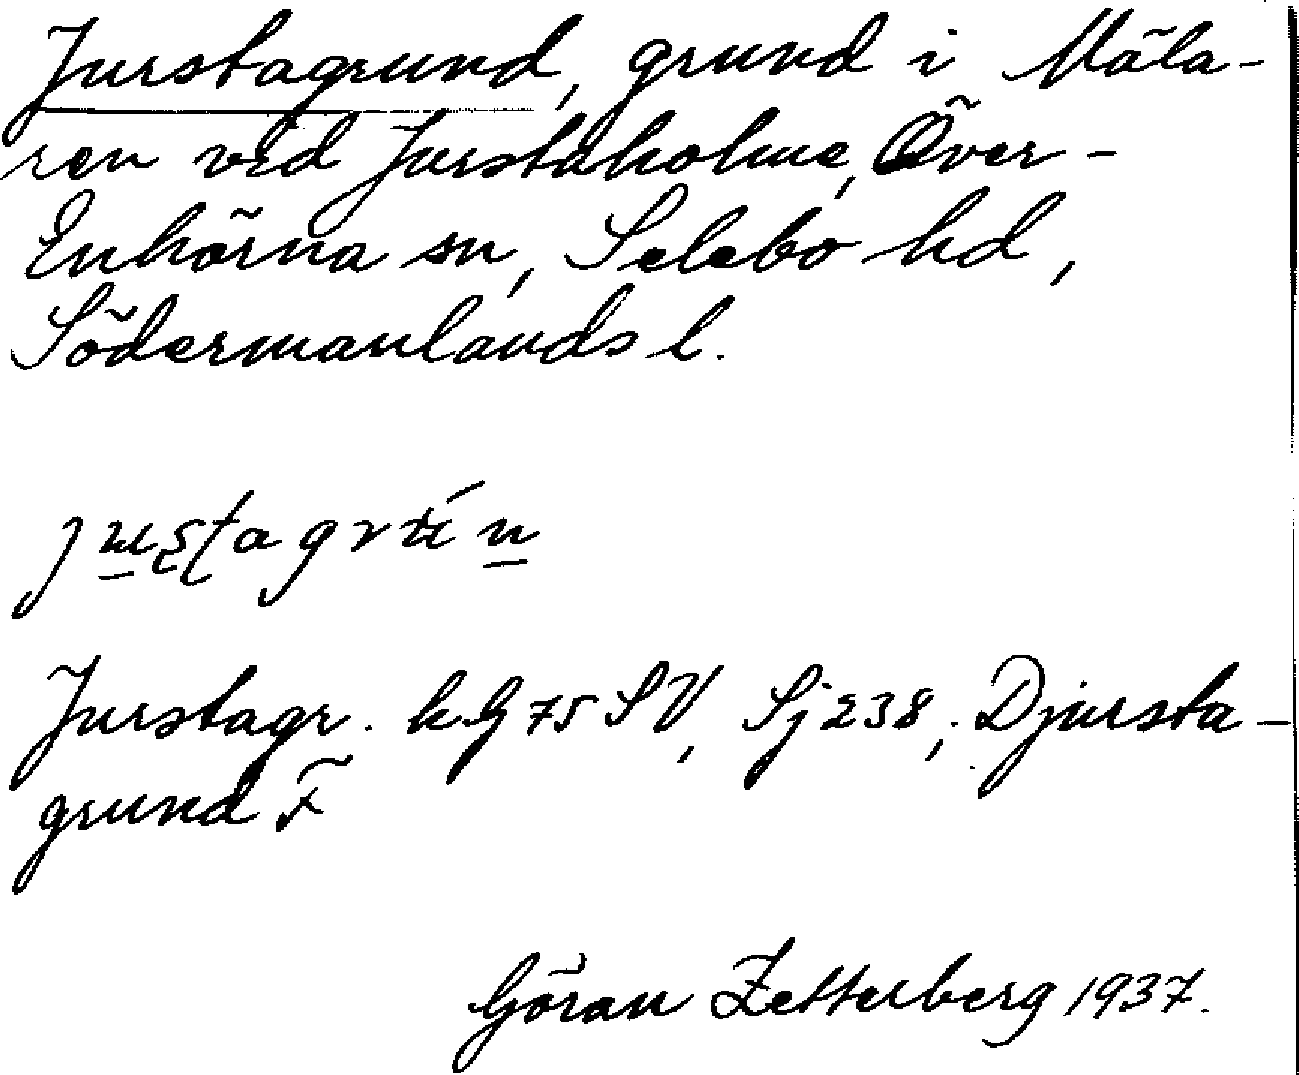 Jurstagrund, grund i Mäla-
ren vid Jurstaholme, Över-
Enhörna sn, Selebo hd,
Södermanlands l.
Jurstagr. kG 75 SV, Sj 238; Djursta-
grund F
Göran Zetterberg 1937.